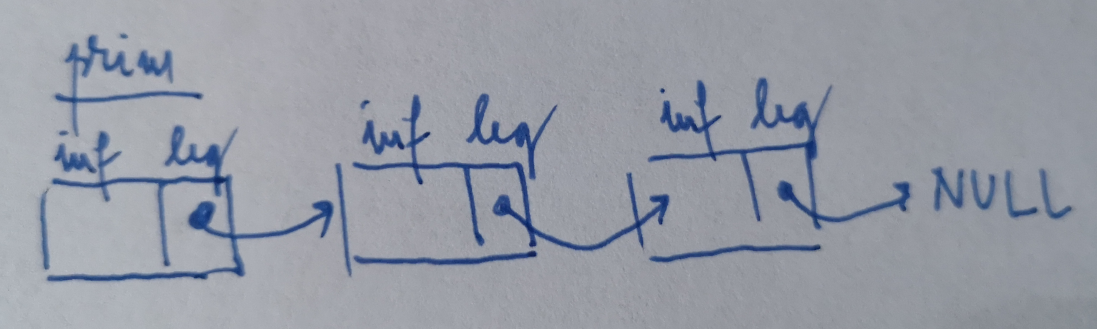 prim
inf leg inf leg inf leg
NULL